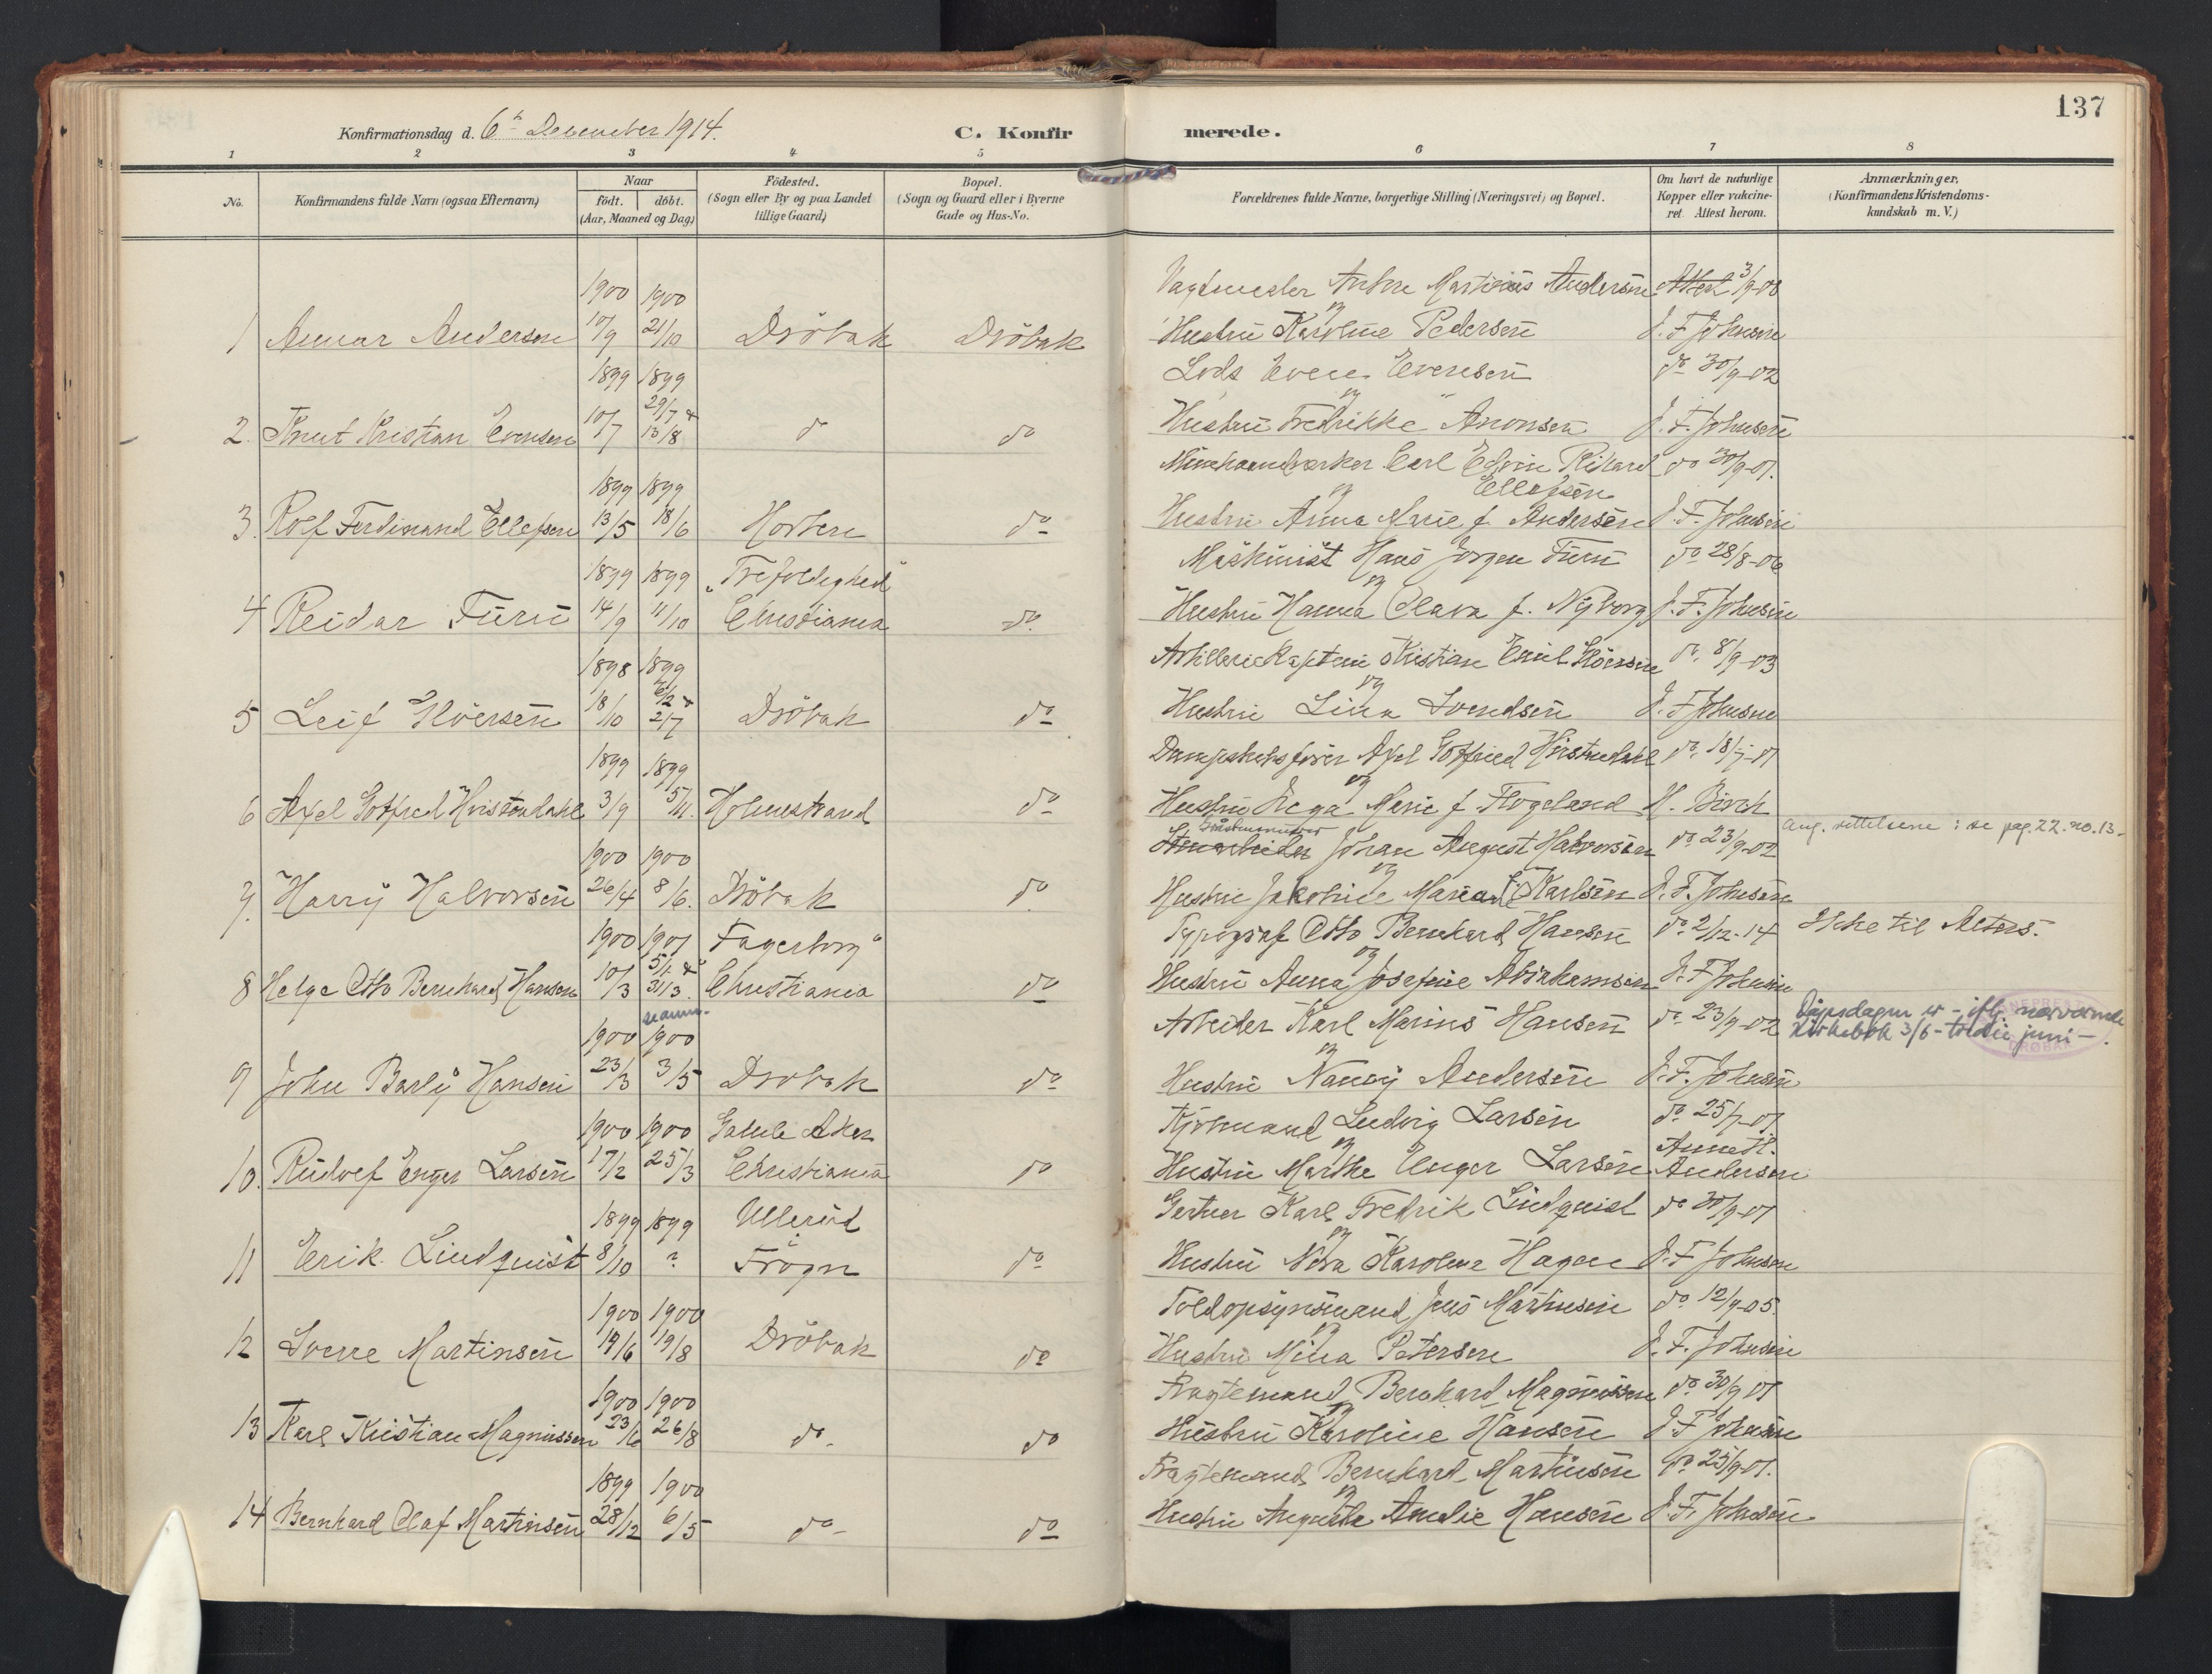 137
Konfirmationsdag d. 6te December 1914.
C. Konfirmerede.
1 2 3 4 5 6 7 8
No.
Konfirmandens fulde Navn (ogsaa Efternavn)
Naar
födt. döbt.
(Aar, Maaned og Dag)
Födested.
(Sogn eller By og paa Landet
tillige Gaard)
Bopæl.
(Sogn og Gaard eller i Byerne
Gade og Hus-No.
Forældrenes fulde Navne, borgerlige Stilling (Næringsvei) og Bopæl.
Om havt de naturlige
Kopper eller vakcine-
ret. Attest herom.
Anmærkninger,
(Konfirmandens Kristendoms-
kundskab m. V.)
1900 1900 Martinius Andersen Attest 3/9-00
1 Andersen 10/9 21/10 Dröbak Dröbak Hustru Karoline Pedersen J. F. Johnsen
1899 1899 Lods Even Evensen do 30/9-02
29/7 &
2. Knut Kristian Evensen 10/7 13/8 do do Hustru Fredrikke Aronsen J. F. Johnsen
1899 1899 Minehaandverker Carl Edvin Rikard do 30/9-01.
Ellefsen
3. Rolf Ferdinand Ellefsen 13/5 18/6 Horten do Hustru Anna Marie f. Andersen J. F. Johnsen
1899 1899 "Trefoldighed" Maskinist Hans Jörgen Furu do 28/8-06
4 Reidar Furu 14/9 11/10 Christiania do. Hustru Hanna Olava f. Nyborg J. F. Johnsen
1898 1899 Artillerikaptein Kristian Emil do 8/9-03
5 Leif 18/10 2/7 Dröbak do Hustru Lina Svendsen J. F. Johnsen
1899 1899 Dampskibsförer Axel Gotfried do 18/7-01
6 Axel Gotfred 3/9 5/11. Holmestrand do Hustru Marie f. H. Birch
ang. rettelsene: se pag. 22. no. 13.
1900 1900 Stenarbeider Johan August Halvorsen do 23/9-02
7. Harry Halvorsen 26/4 8/6. Dröbak do Hustru Jakobine Karlsen J. F. Johnsen
1900 1901 "Fagerborg" Typograf Otto Bernhard Hansen do 2/12-14 Ikke til Alters.
5/1 &
8 Helge Otto Bernhard Hansen 10/3 31/3. Christiania do Hustru Anna Josefine Abrahamsen J. F. Johnsen
se anm.
1900 1900 Arbeider Karl Marius Hansen do 23/9-02 Dåpsdagen er - iflg. nærværende
kirkebok 3/6 - tredie juni -.
9 John Barly Hansen 23/3 3/5 Dröbak do Hustru Nanny Andersen J. F. Johnsen
1900 1900 Gamle Aker Kjöbmand Ludvig Larsen do 25/7-01
Anne H.
10. Rudolf Enger Larsen 17/2 25/3 Christiania do Hustru Marthe Enger Larsen Andersen
1899 1899 Ullerud Gartner Karl Fredrik Lindquist do 30/9-01
11 Erik Lindquist 8/10 ? Frogn do Hustru Nora Karoline Hagen J. F. Johnsen
1900 1900 Toldopsynsmand Jens Martinsen do 12/9-05.
12 Sverre Martinsen 19/6 19/8 Dröbak do Hustru Mina Petersen J. F. Johnsen
1900 1900 Fragtemand Bernhard Magnussen do 30/9 01
13 Karl Kristian Magnussen 23/6 26/8 do do Hustru Karoline Hansen J. F. Johnsen
1899 1900 Fragtemand Bernhard Martinsen do 25/9-01.
14 Bernhard Olaf Martinsen 28/12 6/5 do do Hustru Augusta Amalie Hansen J. F. Johnsen